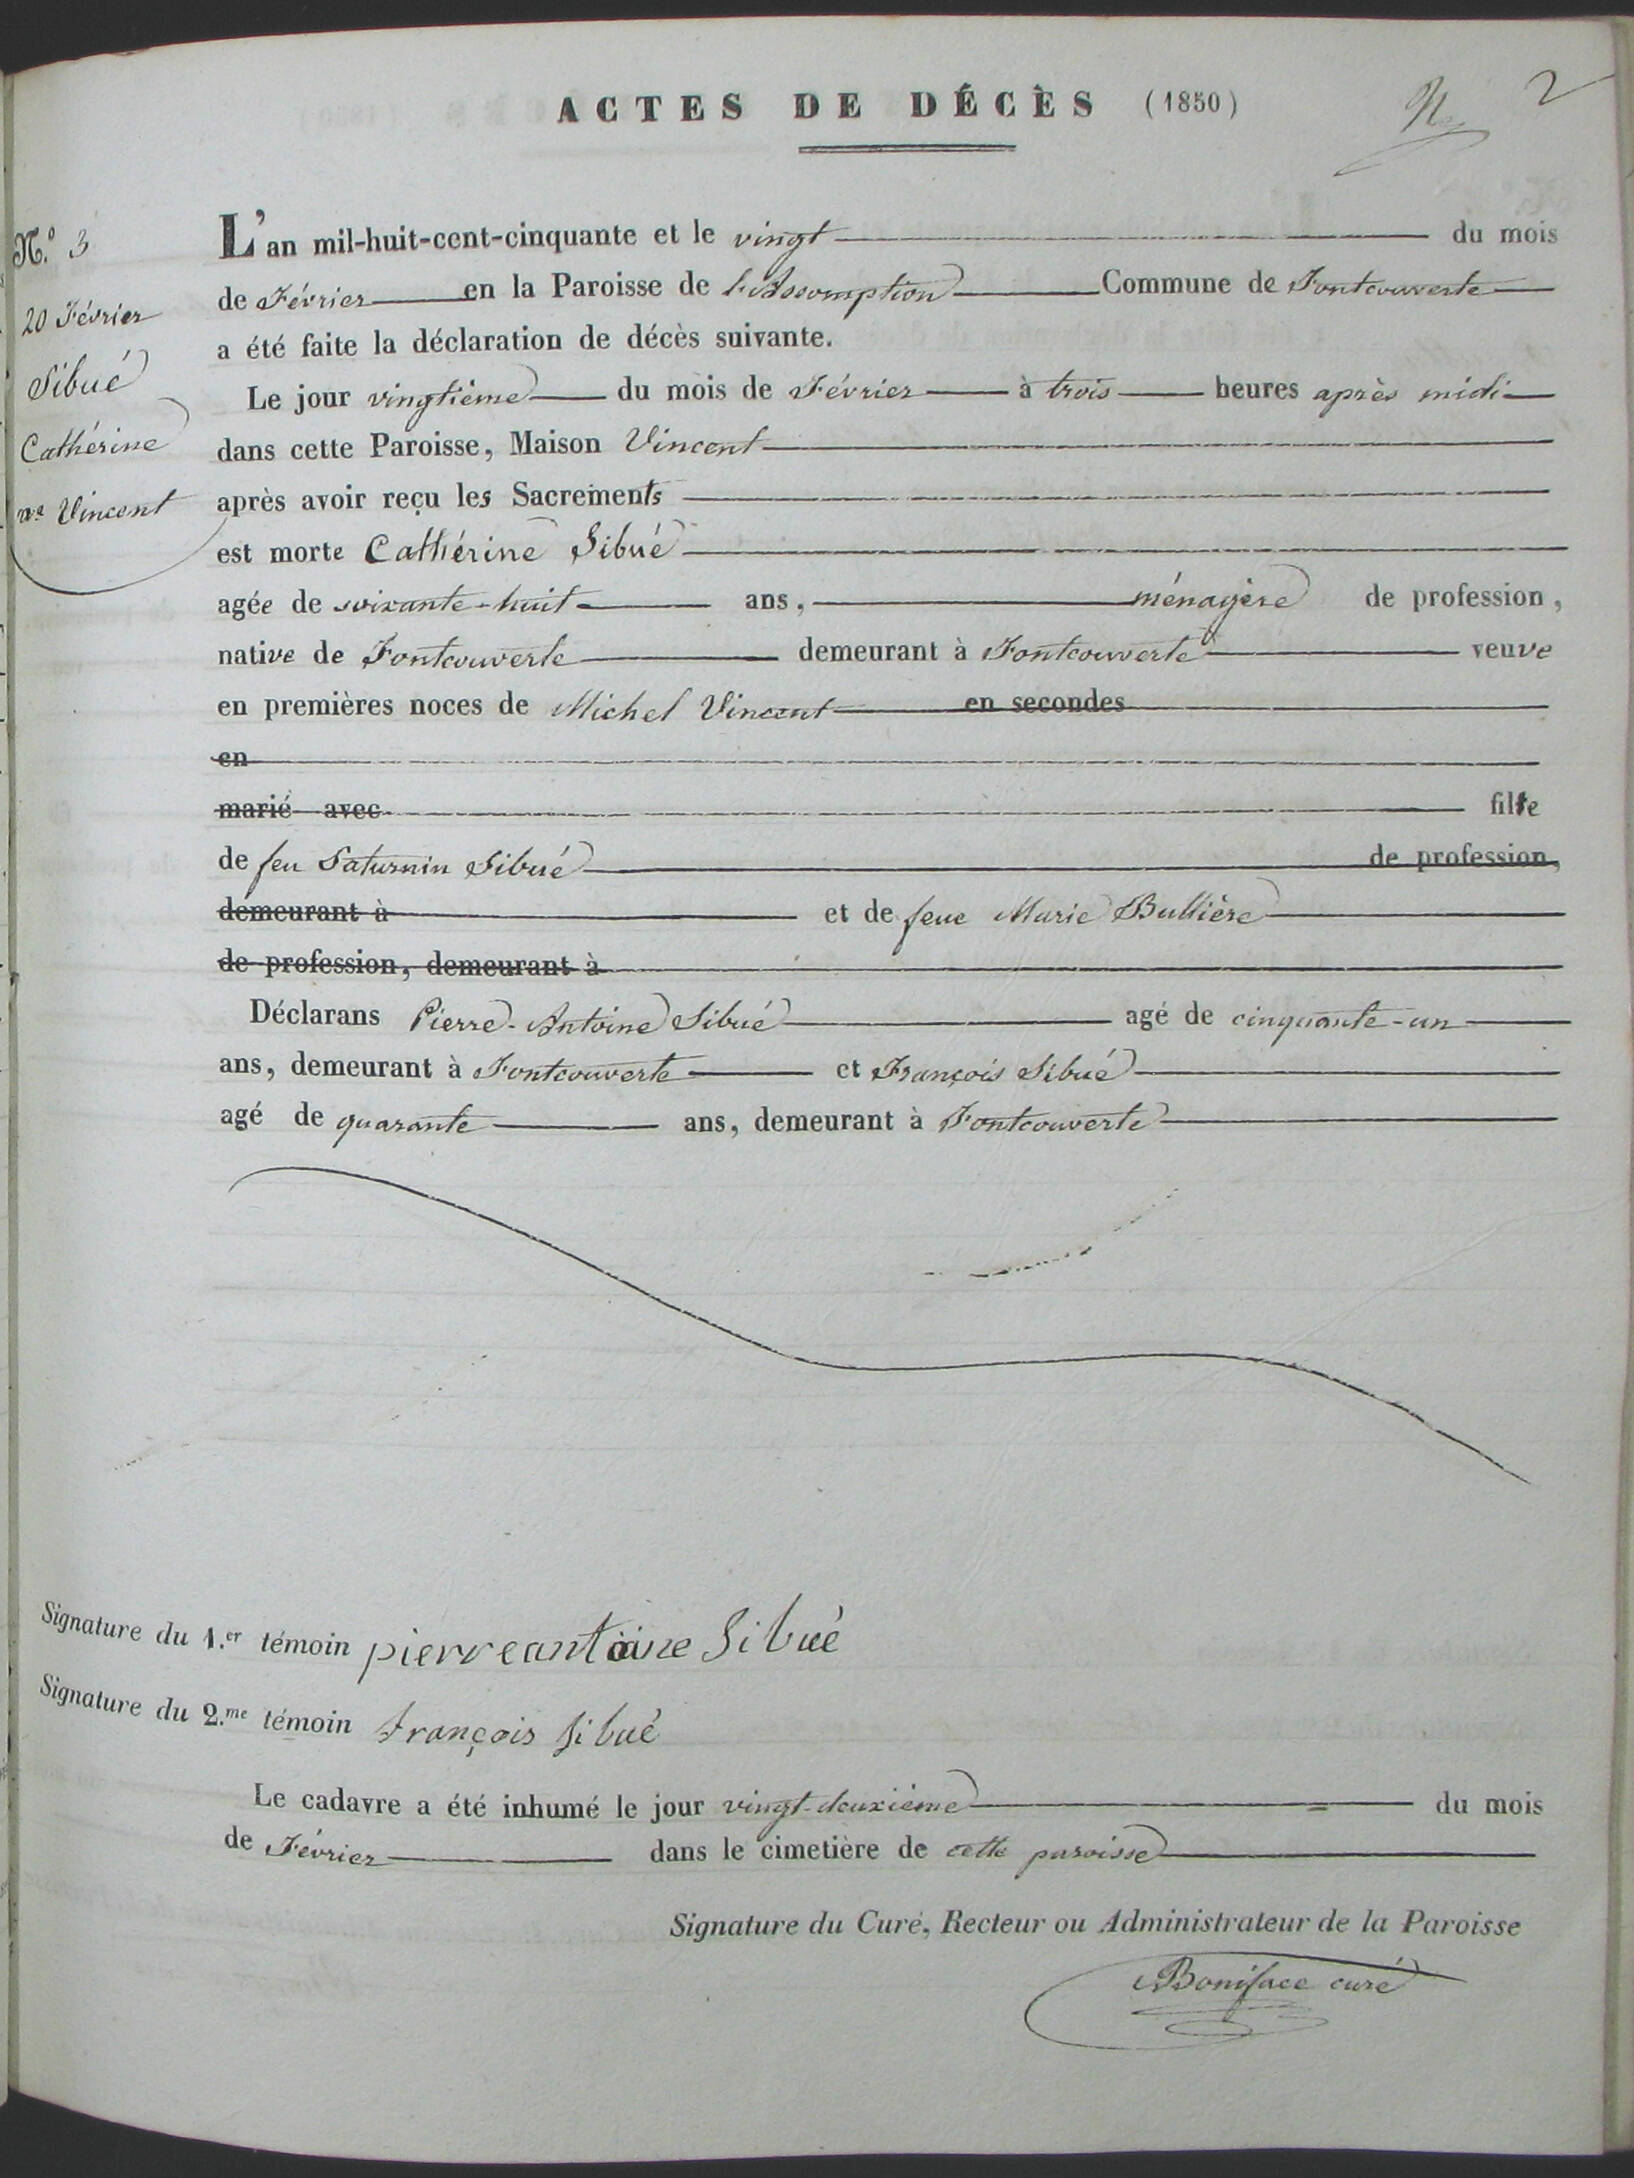 ACTES DE DÉCÈS (1850)
2
N.º 3
20 Février
Sibué
Cathérine
vᵉ Vincent
L'an mil-huit-cent-cinquante et le vingt du mois
de Février en la Paroisse de l'Assomption Commune de Fontcouverte
a été faite la déclaration de décès suivante.
Le jour vingtième du mois de Février à trois heures après midi
dans cette Paroisse, Maison Vincent
après avoir reçu les Sacrements
est morte Cathérine Sibué
agée de soixante-huit ans, ménagère de profession,
native de Fontcouverte demeurant à Fontcouverte veuve
en premières noces de Michel Vincent en secondes
en
marié avec fille
de feu Saturnin Sibué de profession,
demeurant à et de feue Marie Bullière
de profession, demeurant à
Déclarans Pierre-Antoine Sibué agé de cinquante-un
ans, demeurant à Fontcouverte et François Sibué
agé de quarante ans, demeurant à Fontcouverte
Signature du 1.er témoin pierre antoine Sibué
Signature du 2.me témoin françois Sibué
Le cadavre a été inhumé le jour vingt-deuxième du mois
de Février dans le cimetière de cette paroisse
Signature du Curé, Recteur ou Administrateur de la Paroisse
Boniface curé